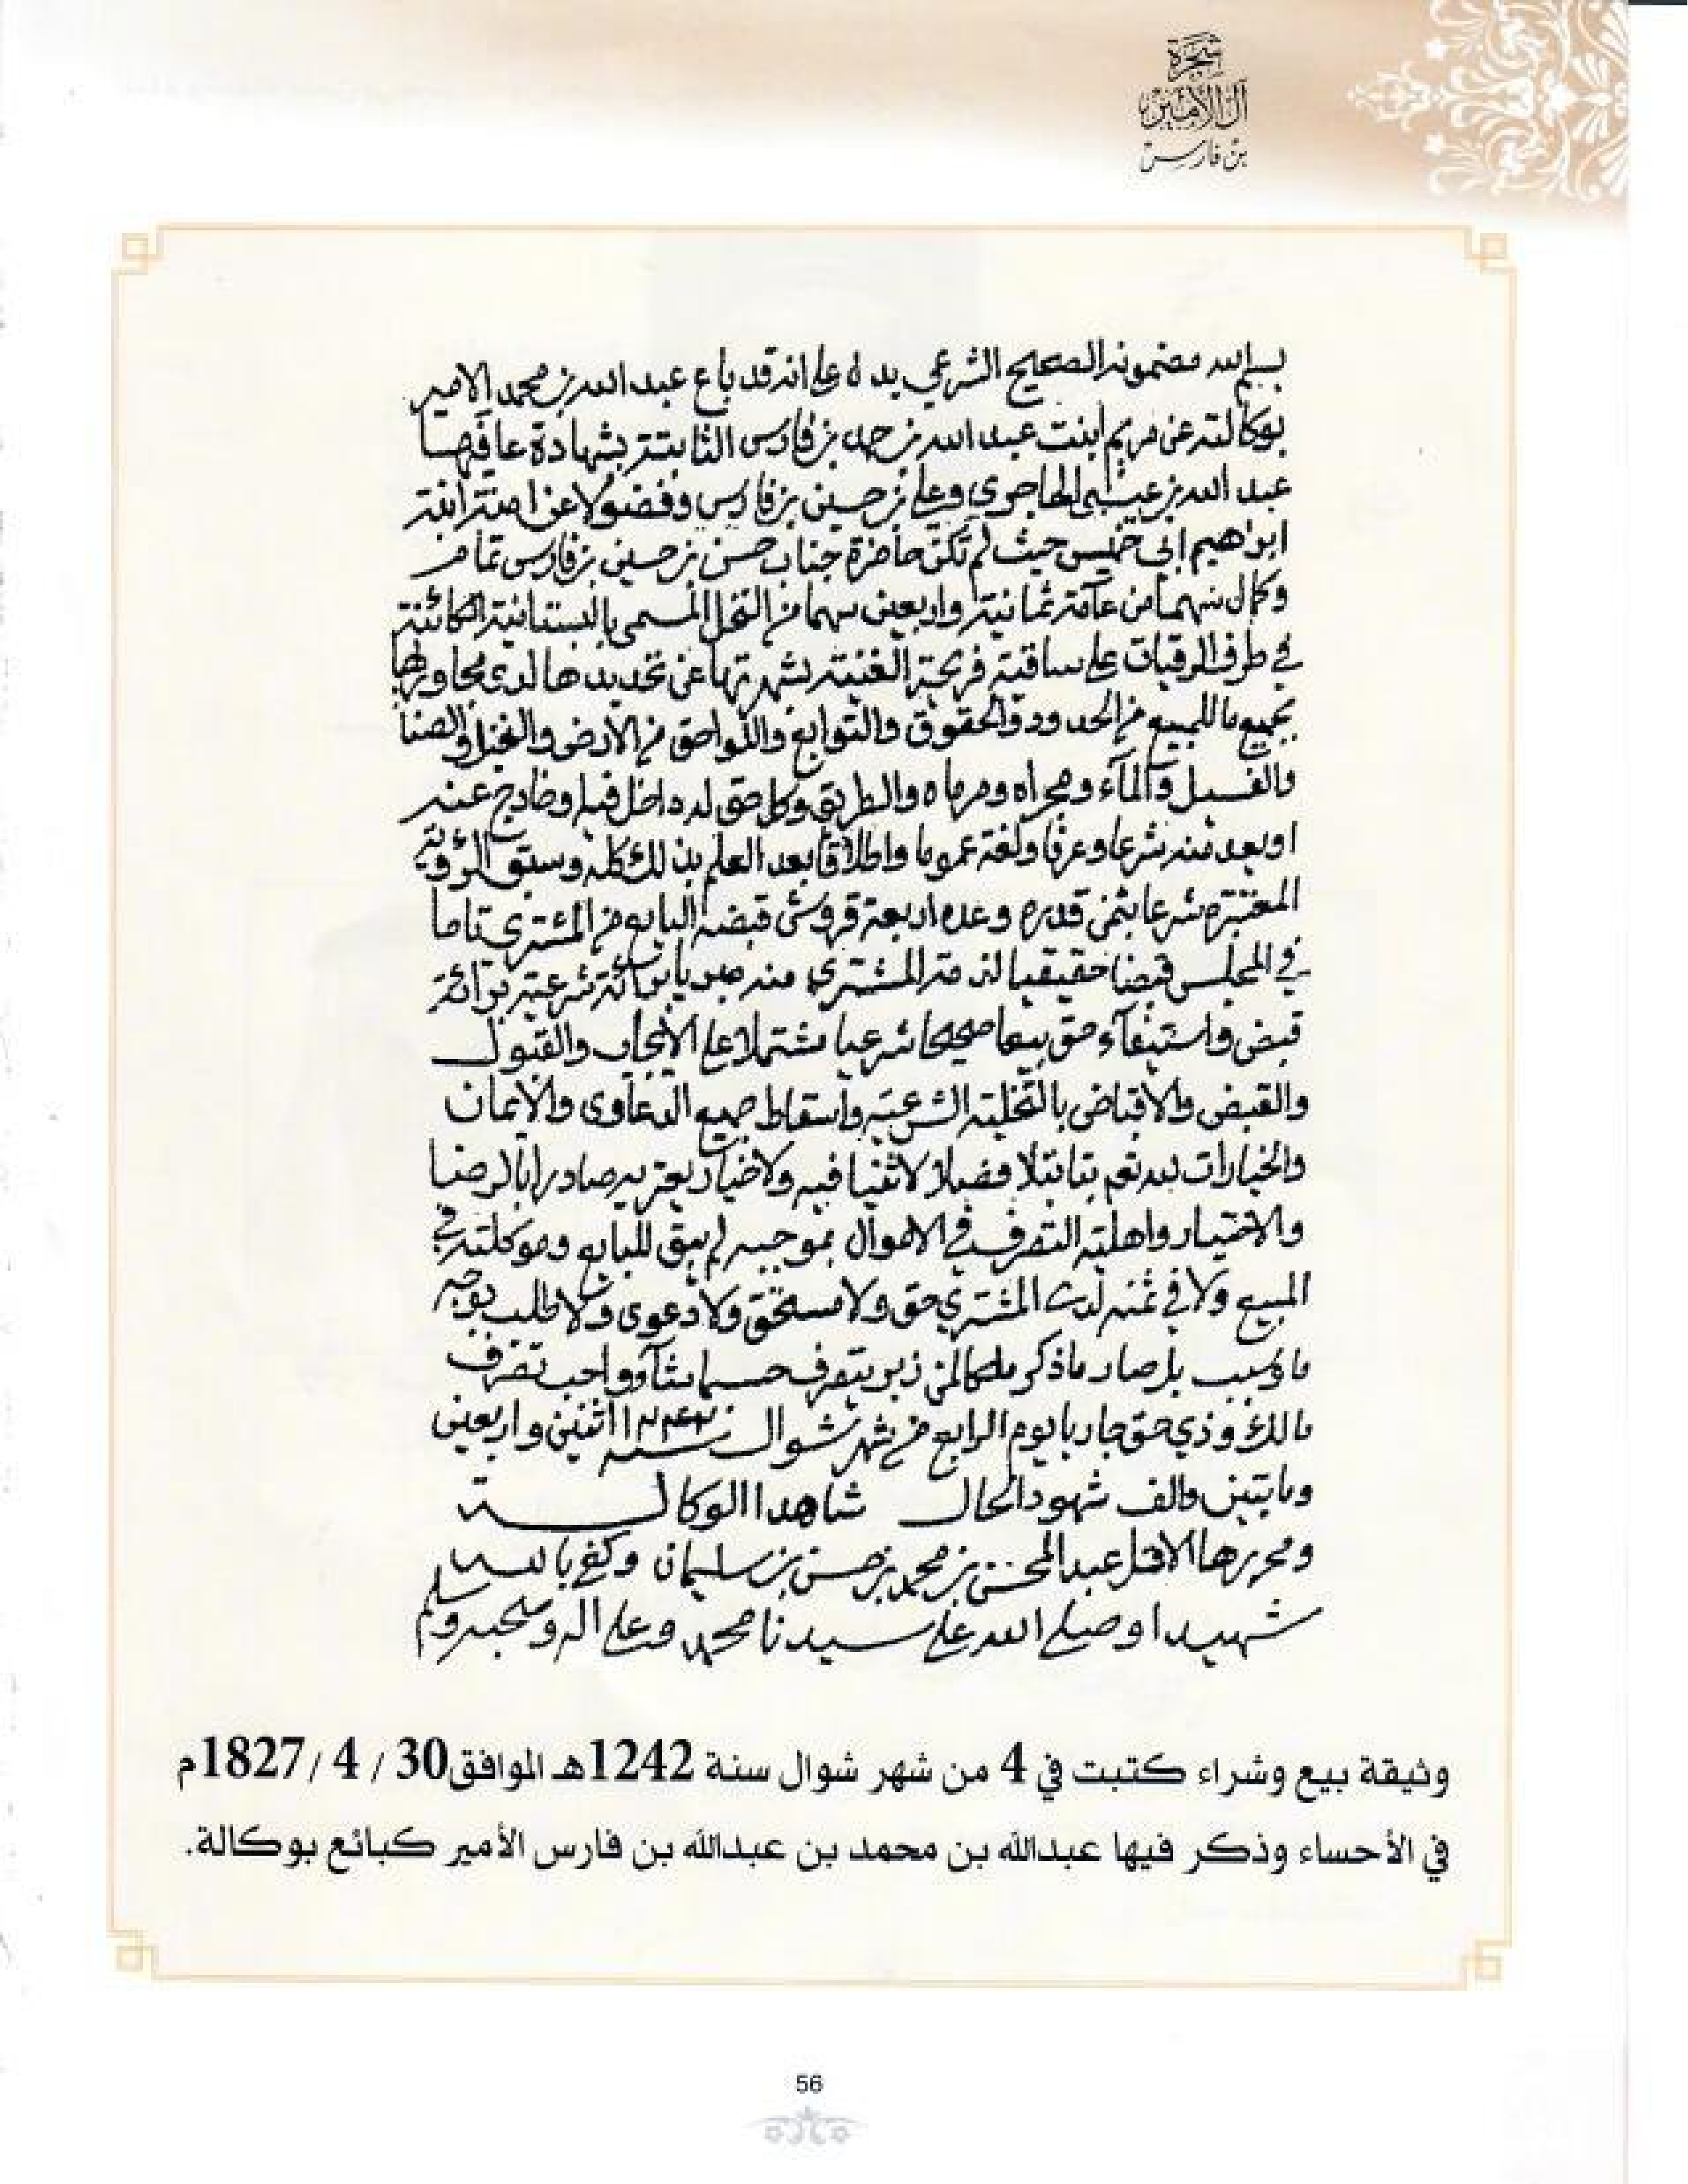 شجرة
آل الأمير
بن فارس
بسم الله مضمونه الصحيح الشرعي يده على انه قد باع عبد الله بن محمد الامير
بوكالته عن مريم ابنت عبد الله بن حمد بن فارس الثابتة بشهادة عافيها
عبد الله بن عيسى الهاجري وعلي بن حسين بن فارس وفضولا عن امنة ابنة
ابراهيم ابن خميس حيث لم تكن حاضرة جناب حسن بن حسين بن فارس تمام
وكمال سهما من عامة ثمانية واربعين سهما من النخل المسمى بالبستانية الكائنة
في طرف الرقيات على ساقية الغنية بشهرتها عن تحديدها لدى مجاوريها
بجميع ما للمبيع من الحدود والحقوق والتوابع واللواحق من الارض والنخل
والفسيل والمآء ومجراه ومرماه والطريق وكل حق له داخل فيه وخارج عنه
او يعد منه شرعا وعرفا ولغة عموما واطلاقا بعد العلم بذلك كله وسبق الرؤية
المعتبرة شرعا بثمن قدره وعده اربعة قروش قبضه البايع من المشتري تاما
في المجلس قبضا حقيقيا المشتري منه برائة شرعية برائة
قبض واستيفآء حق بيعا صحيحا شرعيا مشتملا على الايجاب والقبول
والقبض والاقباض بالتخلية الشرعية واسقاط جميع الدعاوى والايمان
والخيارات بتا بتلا فصلا لا ثنيا فيه ولا خيار يعتريه صادرا بالرضا
والاختيار واهلية التصرف في الاموال بموجبه لم يبق للبايع وموكلته في
المبيع ولا في ثمنه لدى المشتري حق ولا مستحق ولا دعوى ولا طلب بوجه
ما وسبب بل صار ما ذكر ملكا لمن زبر يتصرف حسبما شآء واحب تصرف
مالك وذي حق جار باليوم الرابع من شهر شوال سنة ١٢٤٢ اثنين واربعين
ومايتين والف شهود الحال شاهدا الوكالة
ومحررها الاقل عبد المحسن بن محمد بن حسن بن سليمان وكفى بالله
شهيدا وصلى الله على سيدنا محمد وعلى اله وصحبه وسلم
وثيقة بيع وشراء كتبت في 4 من شهر شوال سنة 1242هـ الموافق30 / 4 /1827م
في الأحساء وذكر فيها عبدالله بن محمد بن عبدالله بن فارس الأمير كبائع بوكالة.
56